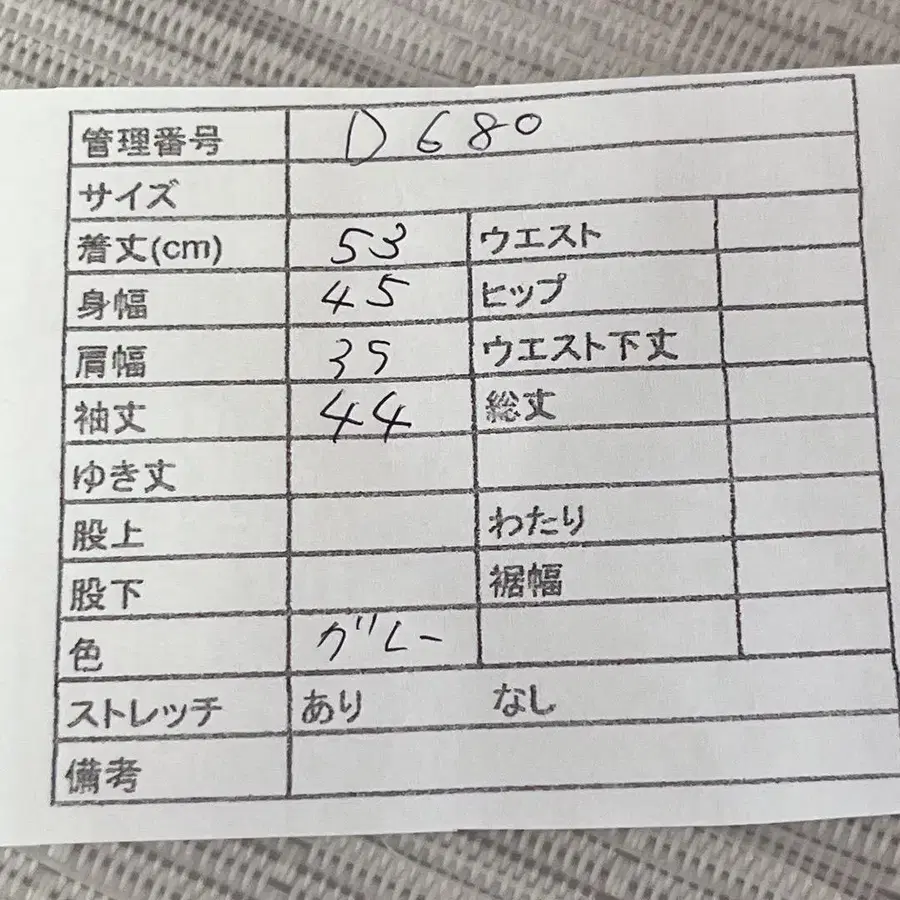 管理番号 D680
サイズ
着丈(cm) 53 ウエスト
身幅 45 ヒップ
肩幅 35 ウエスト下丈
袖丈 44 総丈
ゆき丈
股上 わたり
股下 裾幅
色 グレー
ストレッチ あり なし
備考